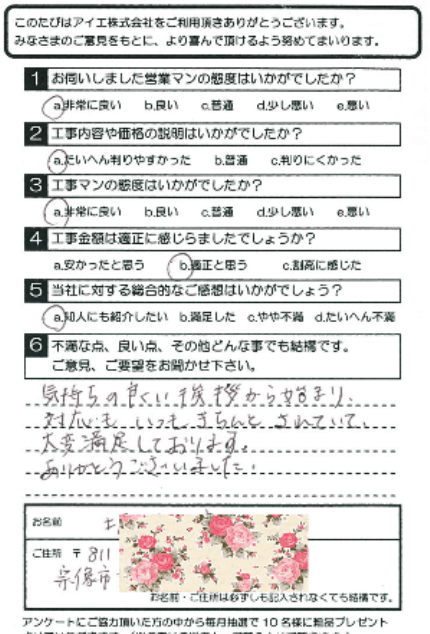 このたびはアイエ株式会社をご利用頂きありがとうございます。
みなさまのご意見をもとに、より喜んで頂けるよう努めてまいります。
1 お伺いしました営業マンの態度はいかがでしたか?
a.非常に良い b.良い c.普通 d.少し悪い e.悪い
2 工事内容や価格の説明はいかがでしたか?
a.たいへん判りやすかった b.普通 c.判りにくかった
3 工事マンの態度はいかがでしたか?
a.非常に良い b.良い c.普通 d.少し悪い e.悪い
4 工事金額は適正に感じらましたでしょうか?
a.安かったと思う b.適正と思う c.割高に感じた
5 当社に対する総合的なご感想はいかがでしょう?
a.知人にも紹介したい b.満足した c.やや不満 d.たいへん不満
6 不満な点、良い点、その他どんな事でも結構です。
ご意見、ご要望をお聞かせ下さい。
気持ちの良い挨拶から始まり、
対応も、いつもきちんとされていて、
大変満足しております。
ありがとうございました!
お名前
ご住所 〒811
宗像市
お名前・ご住所は必ずしも記入されなくても結構です。
アンケートにご協力頂いた方の中から毎月抽選で10名様に粗品プレゼント